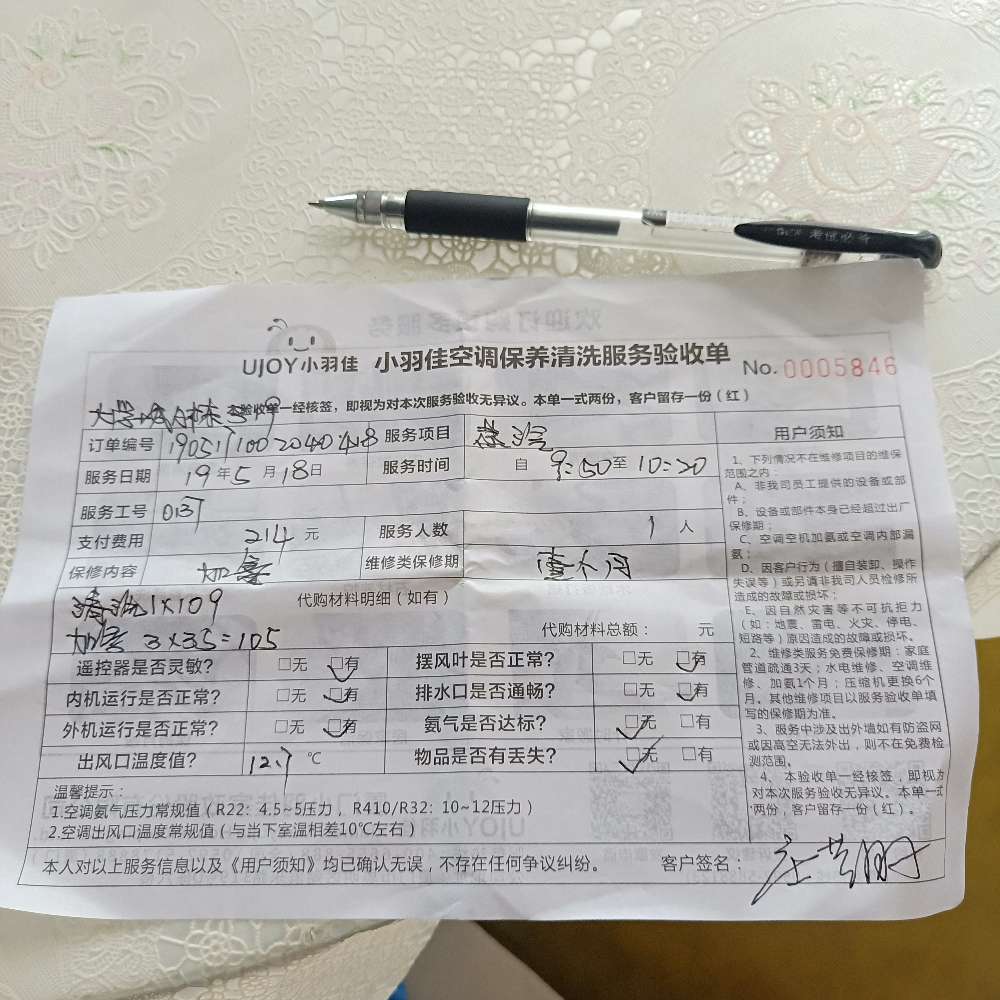 UJOY小羽佳 小羽佳空调保养清洗服务验收单 No.0005846
本验收单一经核签，即视为对本次服务验收无异议。本单一式两份，客户留存一份（红）
订单编号 服务项目
服务日期 19年5月18日 服务时间 自9:50至10:20
服务工号 0137
支付费用 214元 服务人数 1人
保修内容 加氨 维修类保修期 壹个月
清洗1X109 代购材料明细（如有）
加氨 3X35=105 代购材料总额： 元
遥控器是否灵敏？ □无 □有 摆风叶是否正常？ □无 □有
内机运行是否正常？ □无 □有 排水口是否通畅？ □无 □有
外机运行是否正常？ □无 □有 氨气是否达标？ □无 □有
出风口温度值？ 12.7 ℃ 物品是否有丢失？ □无 □有
温馨提示：
1.空调氨气压力常规值（R22：4.5~5压力，R410/R32：10~12压力）
2.空调出风口温度常规值（与当下室温相差10℃左右）
本人对以上服务信息以及《用户须知》均已确认无误，不存在任何争议纠纷。 客户签名：
用户须知
1、下列情况不在维修项目的维保
范围之内：
A、非我司员工提供的设备或部
件；
B、设备或部件本身已经超过出厂
保修期；
C、空调空机加氨或空调内部漏
氨；
D、因客户行为（擅自装卸、操作
失误等）或另请非我司人员检修所
造成的故障或损坏；
E、因自然灾害等不可抗拒力
（如：地震、雷电、火灾、停电、
短路等）原因造成的故障或损坏。
2、维修类服务免费保修期：家庭
管道疏通3天；水电维修、空调维
修、加氨1个月；压缩机更换6个
月。其他维修项目以服务验收单填
写的保修期为准。
3、服务中涉及出外墙如有防盗网
或因高空无法外出，则不在免费检
测范围。
4、本验收单一经核签，即视为
对本次服务验收无异议。本单一式
两份，客户留存一份（红）。